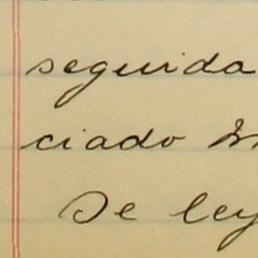 seguida
ciado
De ley